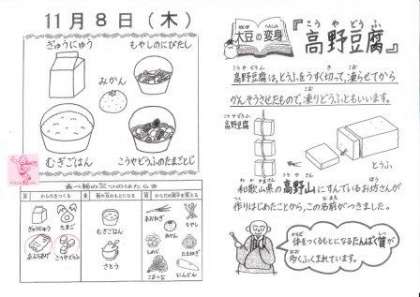 11月8日（木）
ぎゅうにゅう
もやしのにびたし
みかん
むぎごはん
こうやどうふのたまごとじ
食べ物の三つのはたらき
ぎゅうにゅう
たまご
あぶらあげ
こうやどうふ
むぎごはん
さとう
もやし
みかん
にんじん
こまつな
いんげん
大豆の変身
『高野豆腐』
こうやどうふ
高野豆腐は、とうふをうすく切って、凍らせてから
かんそうさせたもので、凍りどうふともいいます。
こうやどうふ
高野豆腐
とうふ
和歌山県の高野山にすんでいるお坊さんが
作りはじめたことから、この名前がつきました。
体をつくるもとになるたんぱく質が
多くふくまれています。